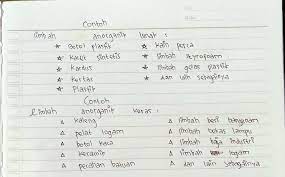 Contoh
limbah anorganik lunak :
* Botol plastik * kain perca
* Karet sintetis * limbah styrofoam
* Kardus * limbah gelas plastik
* kertas * dan lain sebagainya
* Plastik
Contoh
Limbah anorganik keras :
Δ kaleng Δ limbah besi bangunan
Δ pelat logam Δ limbah bekas lampu
Δ botol kaca Δ limbah baja industri
Δ keramik Δ limbah logam
Δ pecahan batuan Δ dan lain sebagainya